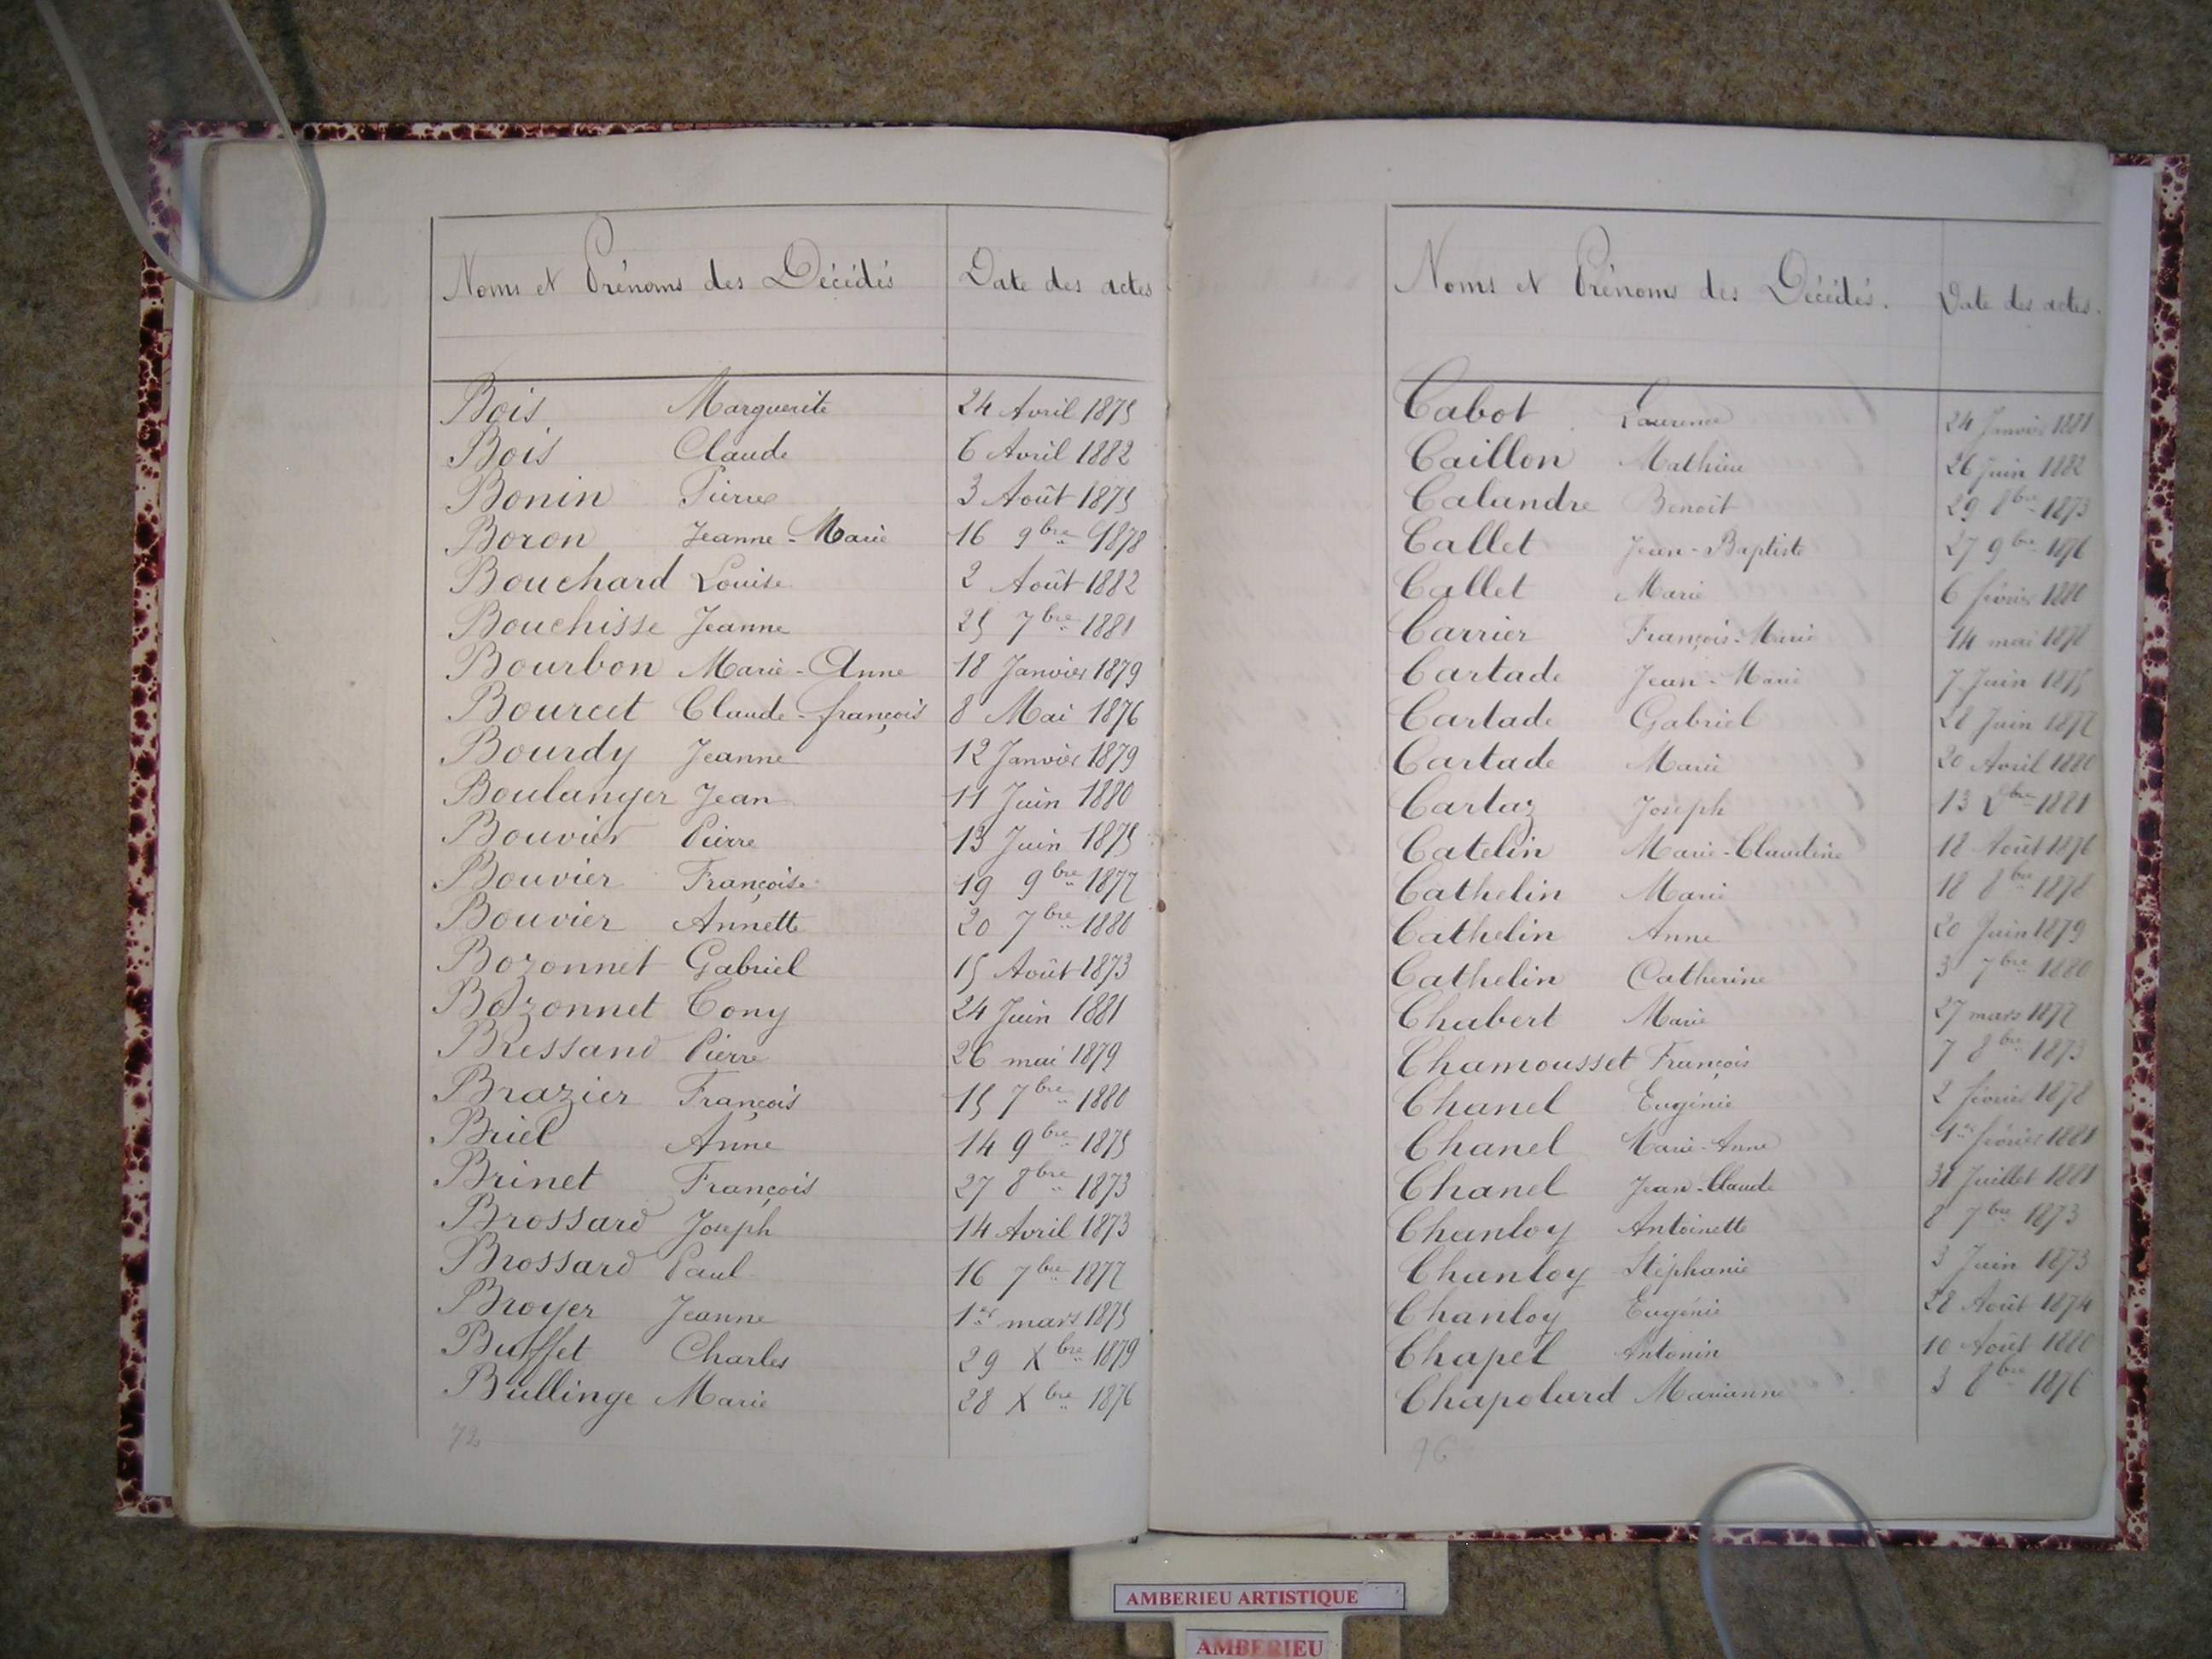 Noms et Prénoms des Décédés Date des actes
Bois Marguerite 24 Avril 1875
Bois Claude 6 Avril 1882
Bonin Pierre 3 Août 1875
Boron Jeanne-Marie 16 9bre 1878
Bouchard Louise 2 Août 1882
Bouchisse Jeanne 25 7bre 1881
Bourbon Marie-Anne 18 Janvier 1879
Bourcet Claude-françois 8 Mai 1876
Bourdy Jeanne 12 Janvier 1879
Boulanger Jean 11 Juin 1880
Bouvier Pierre 13 Juin 1875
Bouvier Françoise 19 9bre 1877
Bouvier Annette 20 7bre 1880
Bozonnet Gabriel 15 Août 1873
Bozonnet Tony 24 Juin 1881
Bressand Pierre 26 mai 1879
Brazier François 15 7bre 1880
Briel Anne 14 9bre 1875
Brinet François 27 8bre 1873
Brossard Joseph 14 Avril 1873
Brossard Paul 16 7bre 1877
Broyer Jeanne 1er mars 1875
Buffet Charles 29 Xbre 1879
Bullinge Marie 28 Xbre 1876
72
Noms et Prénoms des Décédés. Date des actes.
Cabot Laurence 24 Janvier 1881
Caillon Mathieu 26 Juin 1882
Calandre Benoît 29 8bre 1873
Callet Jean-Baptiste 27 9bre 1876
Callet Marie 6 février 1880
Carrier François-Marie 14 mai 1878
Cartade Jean-Marie 7 Juin 1875
Cartade Gabriel 28 Juin 1877
Cartade Marie 20 Avril 1880
Cartaz Joseph 13 Xbre 1881
Catelin Marie-Claudine 18 Août 1876
Cathelin Marie 18 8bre 1878
Cathelin Anne 20 Juin 1879
Cathelin Catherine 3 7bre 1880
Chabert Marie 27 mars 1877
Chamousset François 7 8bre 1873
Chanel Eugénie 2 février 1878
Chanel Marie-Anne 1er février 1881
Chanel Jean-Claude 31 Juillet 1881
Chanloy Antoinette 8 7bre 1873
Chanloy Stéphanie 3 Juin 1873
Chanloy Eugénie 28 Août 1874
Chapel Antonin 10 Août 1880
Chapolard Marianne 3 8bre 1876
96
AMBERIEU ARTISTIQUE
AMBERIEU